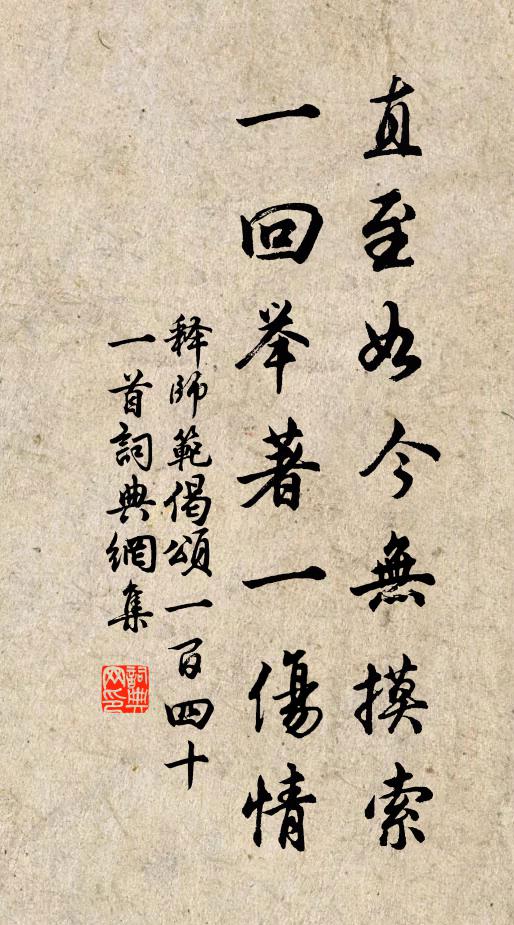 直至如今無摸索
一回举著一傷情
释師範偈頌一百四十
一首詞典網集
詞典
网印